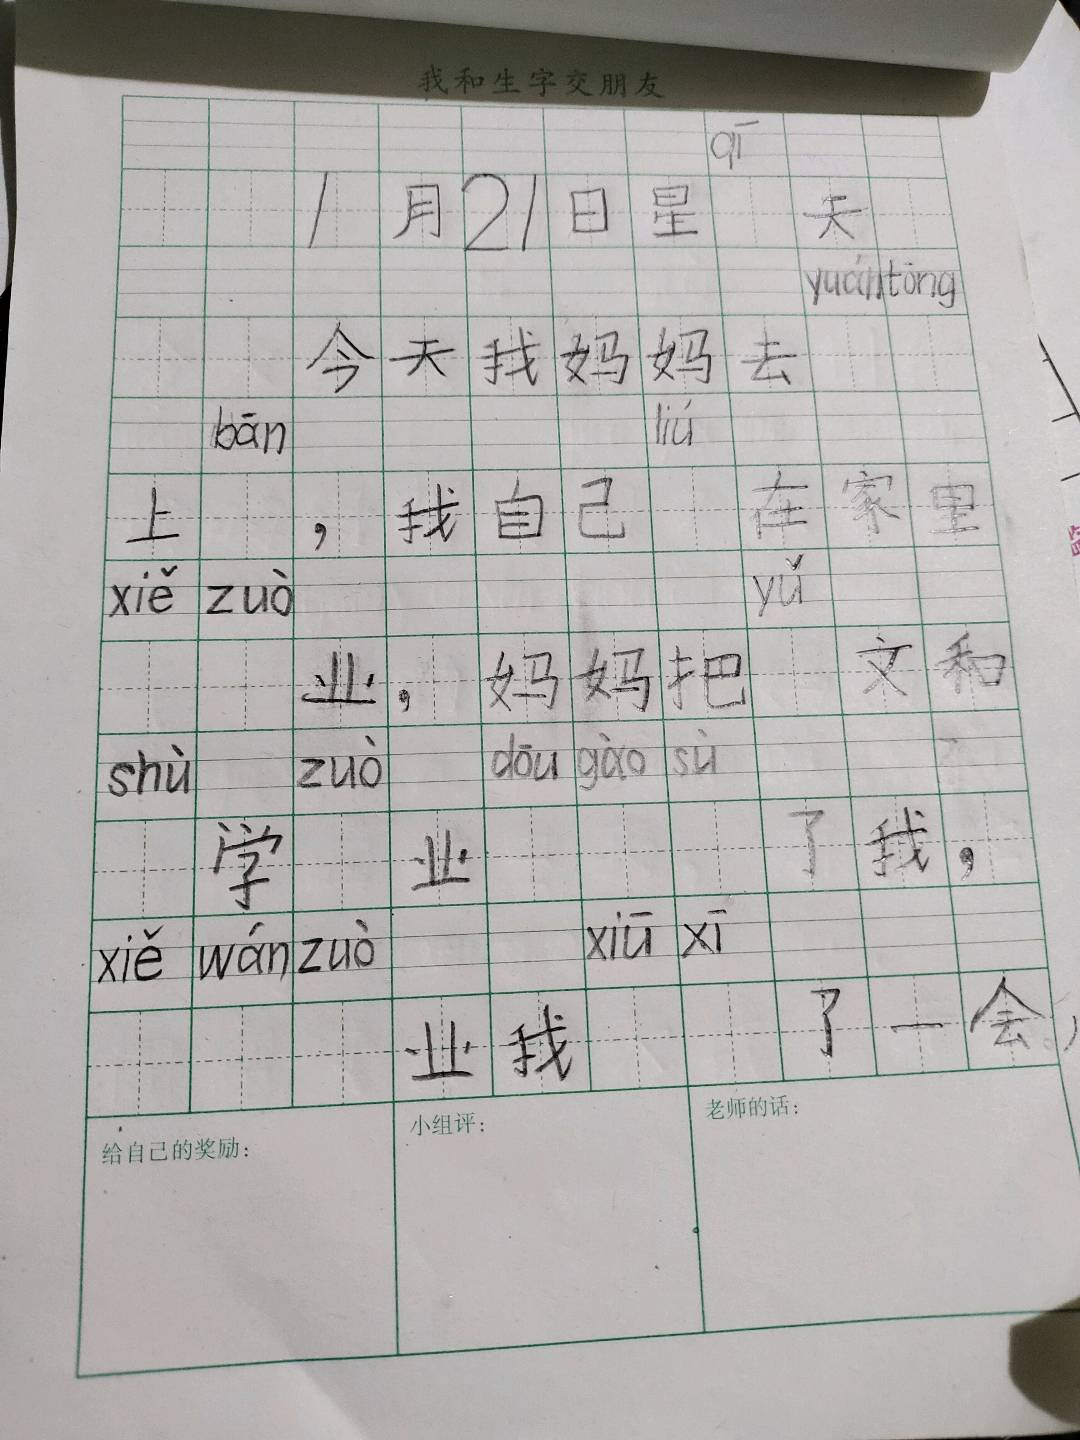 我和生字交朋友
qī
1月21日星 天
yuán tōng
今天我妈妈去
bān liú
上 ，我自己 在家里
xiě zuò yǔ
业，妈妈把 文和
shù zuò dōu gào sù
学 业 了我，
xiě wán zuò xiū xī
业我 了一会
给自己的奖励：
小组评：
老师的话：